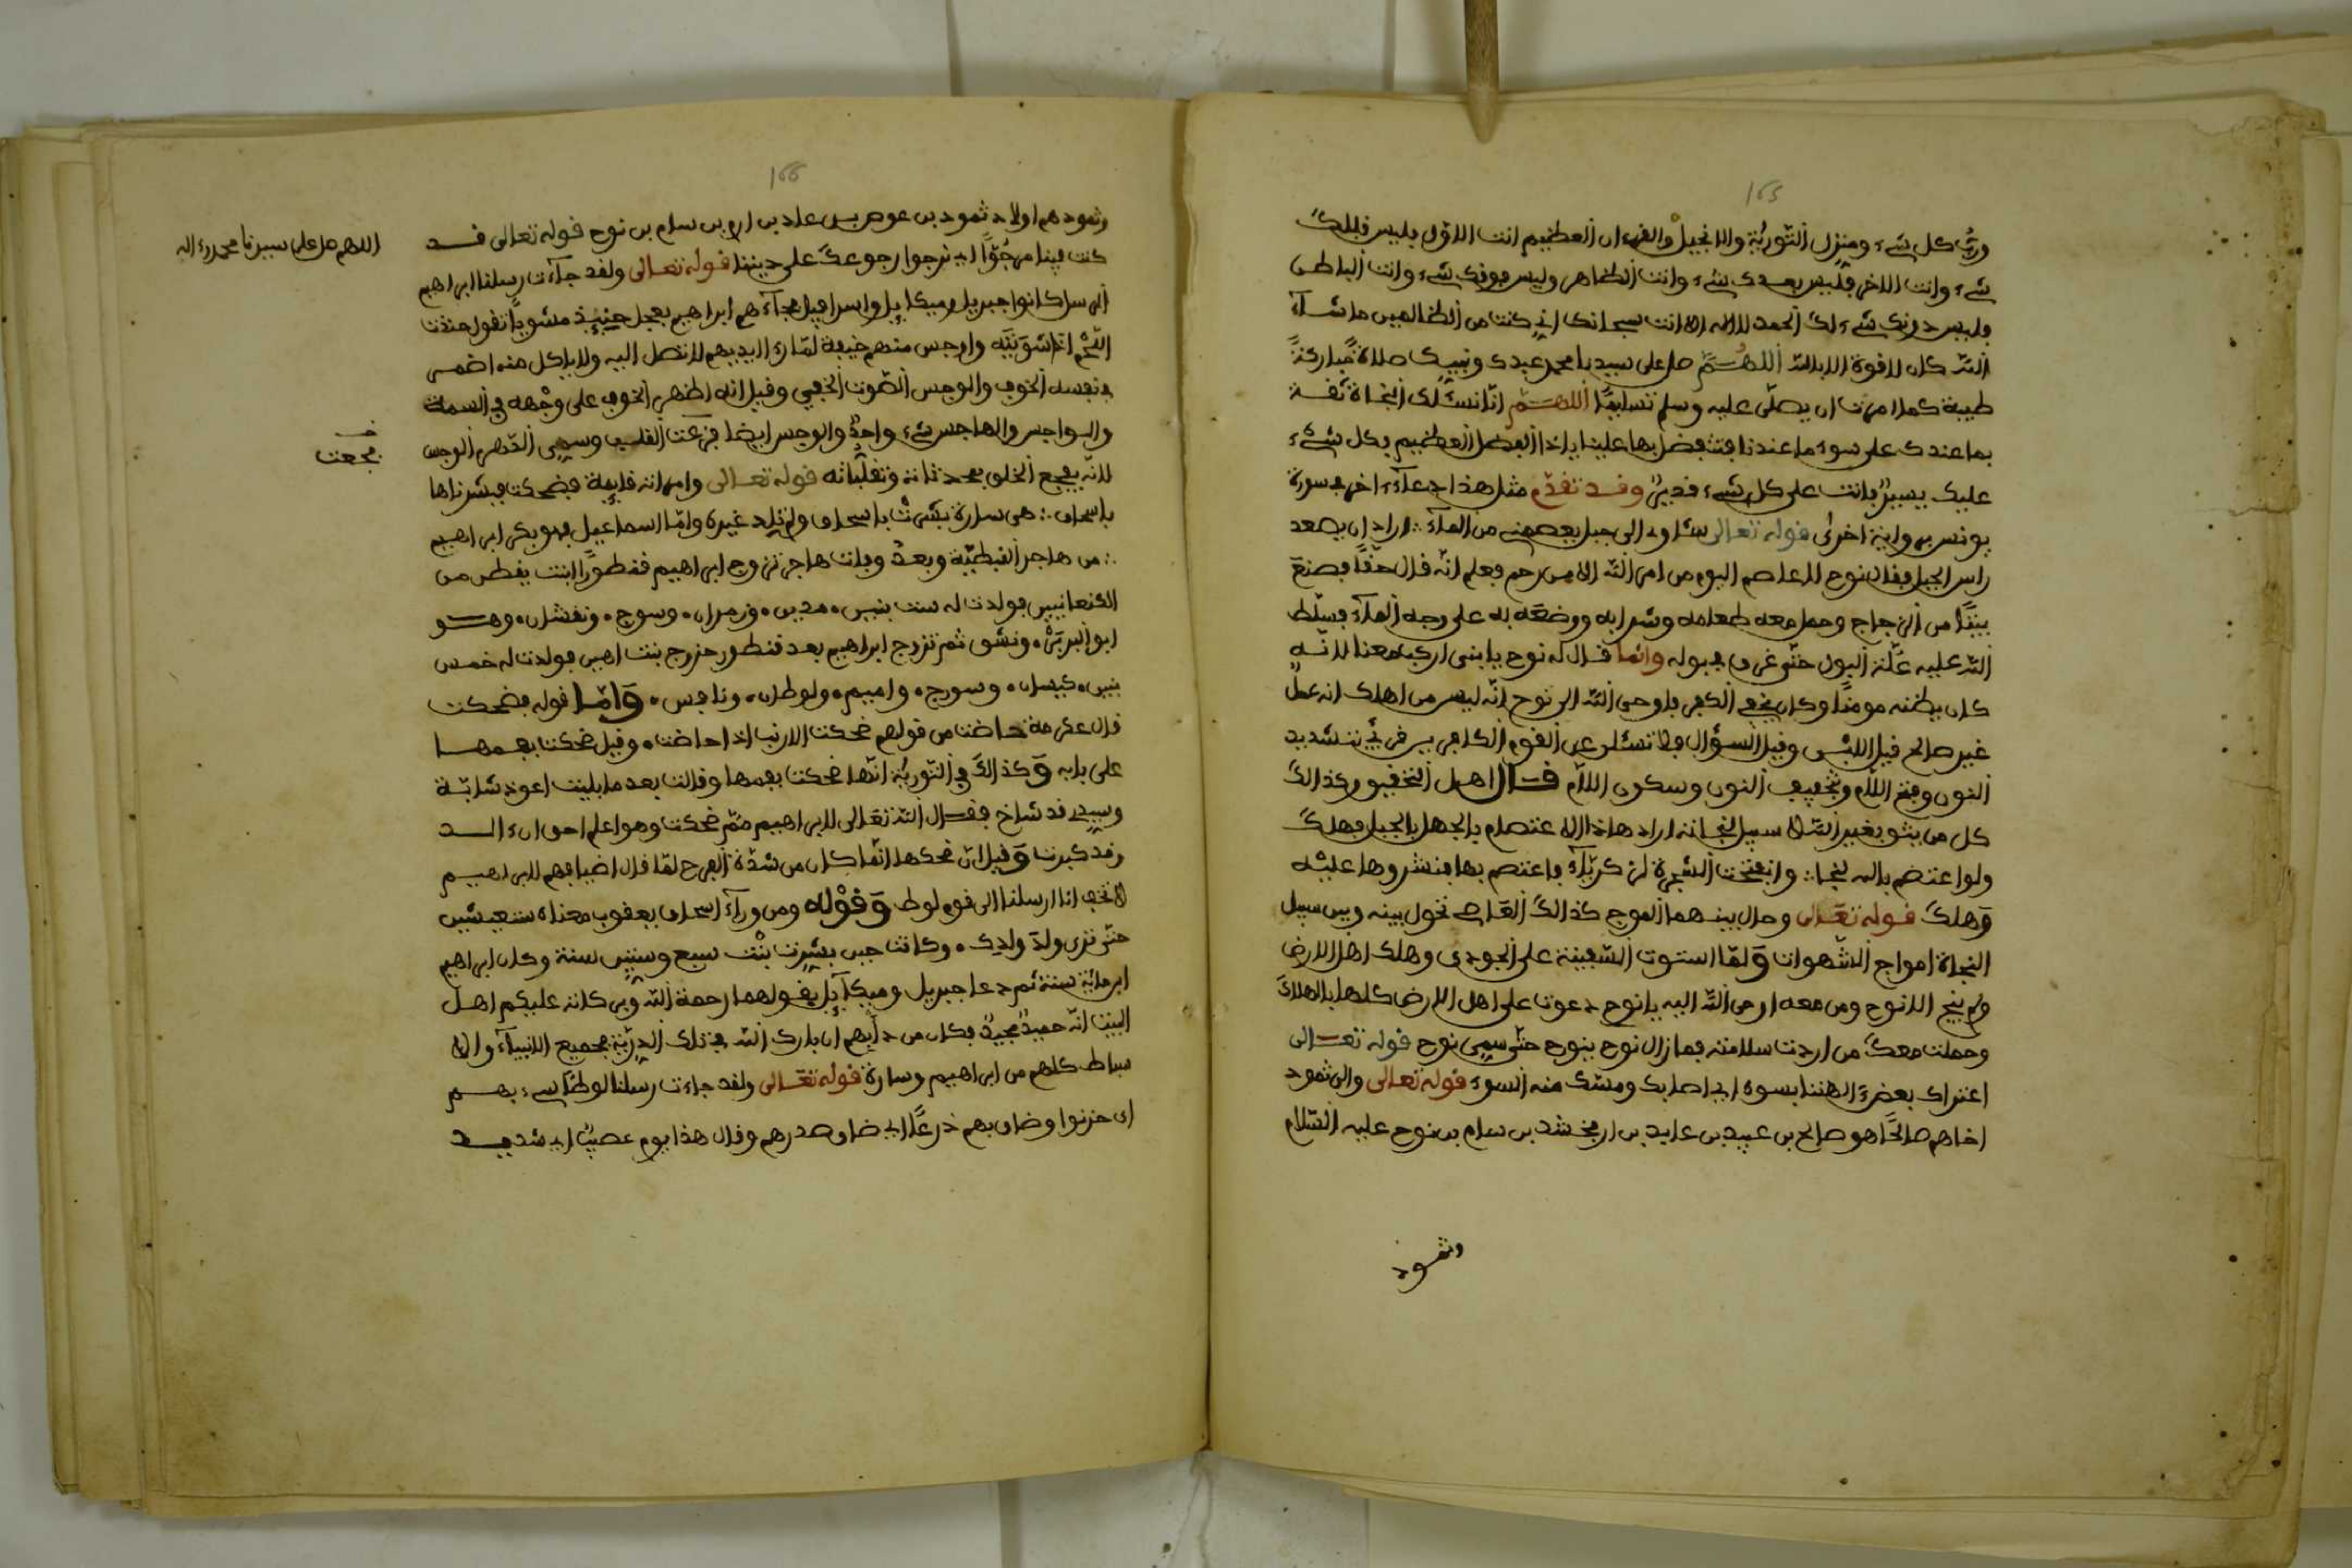 165
وربّ كل شيء ومنزل التورية والانجيل والفرءان العظيم انت الاول فليس قبلك
شيء وانت الاخر فليس بعدك شيء وانت الظاهر وليس فوقك شيء وانت الباطن
وليس دونك شيء لك الحمد لا اله الا انت سبحانك اني كنت من الظالمين ما شاء
الله كان لا قوة الا بالله اللهم صل على سيدنا محمد عبدك ونبيك صلاة مباركة
طيبة كما امرت ان يصلى عليه وسلم تسليما اللهم انا نسئلك النجاة ثقة
بما عندك على سوء ما عندنا فتفضل بها علينا يا ذا الفضل العظيم فكل شيء
عليك يسير فانت على كل شيء قدير وقد تقدم مثل هذا دعاء اخر في سورة
يونس برواية اخرى قوله تعالى ساوي الى جبل يعصمني من الماء اراد ان يصعد
راس الجبل فقال نوح لا عاصم اليوم من امر الله الا من رحم فعلم انه قال حقا فصنع
بيتا من الزجاج وحمل معه طعامه وشرابه ووضعه به على وجه الماء فسلط
الله عليه علة البول حتى غرق في بوله وانما قال له نوح يا بنى اركب معنا لانه
كان يظنه مومنا وكان يخفي الكفر فاوحى الله الى نوح انه ليس من اهلك انه عمل
غير صالح قيل اللبس وقيل السؤال فلا تسئلن عن القوم الكافرين قرئ بتشديد
النون وفتح اللام وبتخفيف النون وسكون اللام قال اهل التحقيق وكذالك
كل من يثق بغير الله لا سبيل لنجاته اراد هاذا الاعتصام بالجهل بالجبل فهلك
ولو اعتصم بالله لنجا وانفتحت الشجرة لزكرياء فاعتصم بها فنشروها عليه
وهلك قوله تعالى وحال بينهما الموج كذالك العاصي تحول بينه وبين سبيل
النجاة امواج الشهوات ولما استوت السفينة على الجودي وهلك اهل الارض
ولم ينج الا نوح ومن معه اوحى الله اليه يا نوح دعوت على اهل الارض كلها بالهلاك
وحملت معك من اردت سلامته فما زال نوح ينوح حتى سمي نوح قوله تعالى
اعتراك بعض ءالهتنا بسوء اي اصابك ومسك منه السوء قوله تعالى والى ثمود
اخاهم صالحا هو صالح بن عبيد بن عابد بن ارفخشد بن سام بن نوح عليه السلام
وثمود
166
وثمود هم اولاد ثمود بن عوص بن عاد بن ارم بن سام بن نوح قوله تعالى قد
اللهم صل على سيدنا محمد وءاله
كنت فينا مرجوا اي نرجوا رجوعك على ديننا قوله تعالى ولقد جاءت رسلنا ابراهيم
الرسل كانوا جبريل وميكايل واسرافيل فجاءهم ابراهيم بعجل حنيذ مشويا تقول حنذت
اللحم اذا شويته واوجس منهم خيفة لما رءا ايديهم لا تصل اليه ولا ياكل منه اضمر
في نفسه الخوف والوجس الصوت الخفي وقيل انه اظهر الخوف على وجهه في السمة
والواجس والهاجس شيء واحد والوجس ايضا فزعت القلب وسمي الدهر الوجس
فجعت
لانه يفجع الخلق بحدثانه وتقلباته قوله تعالى وامراته قايمة فضحكت فبشرناها
باسحاق هي سارة بشرت باسحاق ولم تلد غيره واما اسماعيل فهو بكر ابراهيم
من هاجر القبطية وبعد وفات هاجر تزوج ابراهيم قنطورا ابنت يفطن من
الكنعانيين فولدت له ست بنين مدين وزمران وسوج ونفشان وهو
ابو البربر ونشق ثم تزوج ابراهيم بعد قنطور حزوج بنت اهين فولدت له خمس
بنين كيسان وسورج واميم ولوطان ونافس واما قوله فضحكت
قال عكرمة حاضت من قولهم ضحكت الارنب اذا حاضت وقيل ضحكت بفمها
على بابه وكذالك في التورية انها ضحكت بفمها وقالت بعد ما بليت اعود شابة
وسيدي قد شاخ فقال الله تعالى لابراهيم مم ضحكت وهو اعلم احق ان الد
وقد كبرت وقيل ان ضحكها انما كان من شدة الفرح لما قال اضيافهم لابراهيم
لا تخف انا ارسلنا الى قوم لوط وقوله ومن وراء اسحاق يعقوب معناه ستعيشين
حتى ترى ولد ولدك وكانت حين بشرت بنت سبع وستين سنة وكان ابراهيم
ابن مائة سنة ثم دعا جبريل وميكائل بقولهما رحمة الله وبركاته عليكم اهل
البيت انه حميد مجيد فكان من دابهم ان بارك الله في تلك الذرية فجميع الانبياء والا
سباط كلهم من ابراهيم وسارة قوله تعالى ولقد جاءت رسلنا لوطا سيء بهم
اى حزنوا وضاق بهم ذرعا اي ضاق صدرهم وقال هذا يوم عصيب اي شديد